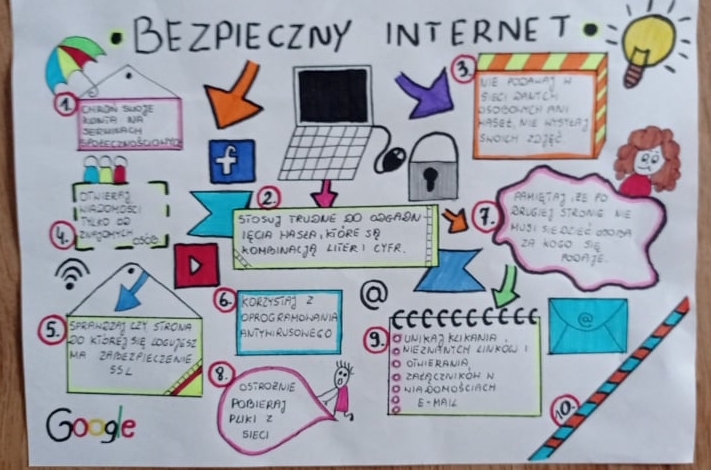 BEZPIECZNY INTERNET
1.
CHROŃ SWOJE
KONTA NA
SERWISACH
SPOŁECZNOŚCIOWYCH
2.
STOSUJ TRUDNE DO ODGADN-
IĘCIA HASŁA, KTÓRE SĄ
KOMBINACJĄ LITER I CYFR.
3.
NIE PODAWAJ W
SIECI DANYCH
OSOBOWYCH ANI
HASEŁ, NIE WYSYŁAJ
SWOICH ZDJĘĆ.
4.
OTWIERAJ
WIADOMOŚCI
TYLKO OD
ZNAJOMYCH
OSÓB
5.
SPRAWDZAJ CZY STRONA
DO KTÓREJ SIĘ LOGUJESZ
MA ZABEZPIECZENIE
SSL
6.
KORZYSTAJ Z
OPROGRAMOWANIA
ANTYWIRUSOWEGO
7.
PAMIĘTAJ, ŻE PO
DRUGIEJ STRONIE NIE
MUSI SIEDZIEĆ OSOBA
ZA KOGO SIĘ
PODAJE.
8.
OSTROŻNIE
POBIERAJ
PLIKI Z
SIECI
9.
UNIKAJ KLIKANIA
NIEZNANYCH LINKÓW I
OTWIERANIA
ZAŁĄCZNIKÓW W
WIADOMOŚCIACH
E-MAIL
10.
f
@
@
Google